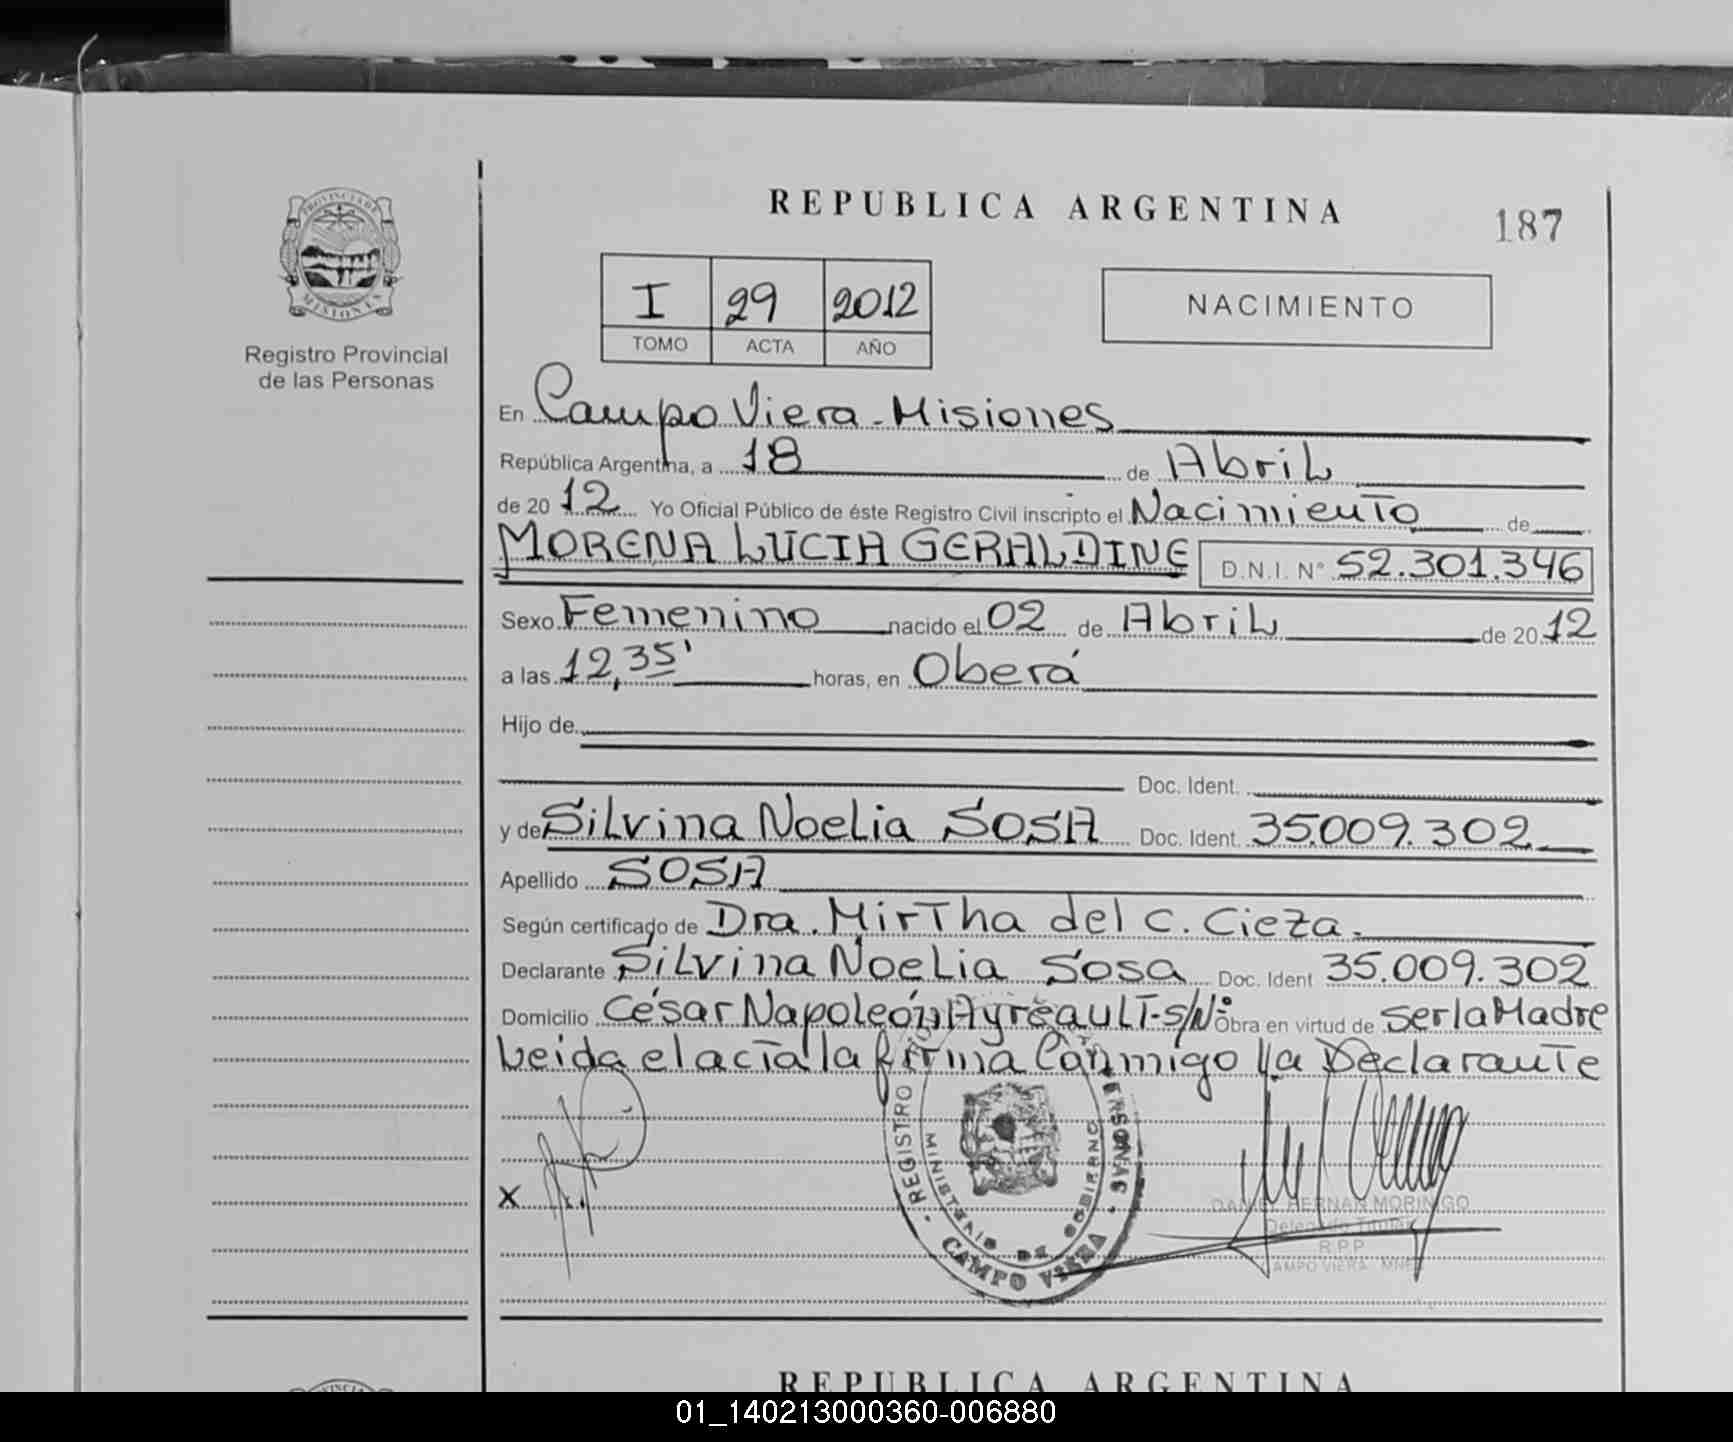 REPUBLICA ARGENTINA
187
PROVINCIA DE
MISIONES
Registro Provincial
de las Personas
I 29 2012
TOMO ACTA AÑO
NACIMIENTO
En Campo Viera - Misiones
República Argentina, a 18 de Abril
de 2012 Yo Oficial Público de éste Registro Civil inscripto el Nacimiento de
MORENA LUCIA GERALDINE D.N.I. N° 52.301.346
Sexo Femenino nacido el 02 de Abril de 2012
a las 12,35' horas, en Oberá
Hijo de
Doc. Ident.
y de Silvina Noelia SOSA Doc. Ident. 35.009.302
Apellido SOSA
Según certificado de Dra. Mirtha del C. Cieza.
Declarante Silvina Noelia Sosa Doc. Ident 35.009.302
Domicilio César Napoleón Ayreault - S/N° Obra en virtud de ser la Madre
Leida el acta la firma Conmigo la Declarante
X
REGISTRO PERSONAS
MINISTERIO DE GOBIERNO
- CAMPO VIERA -
DANIEL HERNAN MORINIGO
Delegado Titular
R.P.P
CAMPO VIERA MNES
REPUBLICA ARGENTINA
01_140213000360-006880